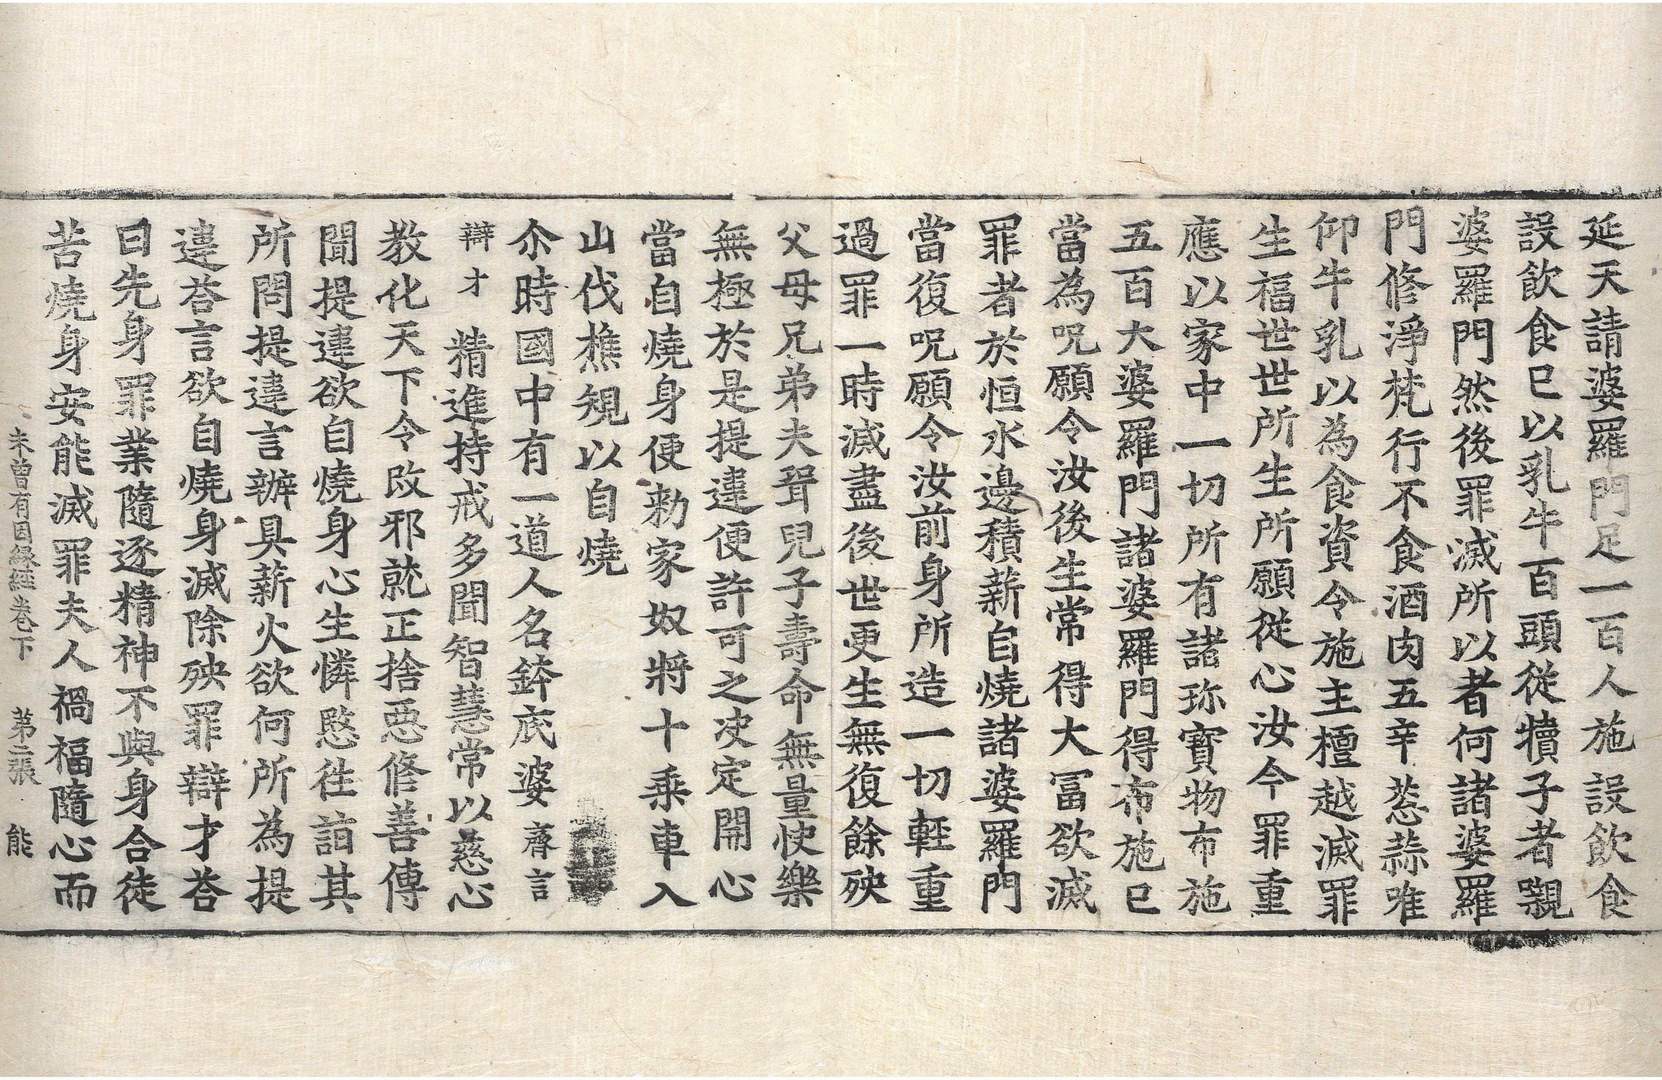 延天請婆羅門足一百人施設飲食
設飲食已以乳牛一百頭從犢子者親
婆羅門然後罪滅所以者何諸婆羅
門修淨梵行不食酒肉五辛葱蒜唯
仰牛乳以為食資令施主檀越滅罪
生福世世所生所願從心汝今罪重
應以家中一切所有諸珎寶物布施
五百大婆羅門諸婆羅門得布施已
當為呪願令汝後生常得大冨欲滅
罪者於恒水邊積薪自燒諸婆羅門
當復呪願令汝前身所造一切輊重
過罪一時滅盡後世更生無復餘殃
父母兄弟夫聟兒子壽命無量快樂
無極於是提違便許可之决定開心
當自燒身便勑家奴將十乘車入
山伐樵規以自燒
尒時國中有一道人名鉢底婆 薺言
辯才 精進持戒多聞智慧常以慈心
教化天下令改邪就正捨惡修善傳
聞提違欲自燒身心生憐愍往詣其
所問提違言辦具薪火欲何所為提
違荅言欲自燒身滅除殃罪辯才荅
曰先身罪業隨逐精神不與身合徒
苦燒身安能滅罪夫人禍福隨心而
未曾有因緣經卷下 第二張 能